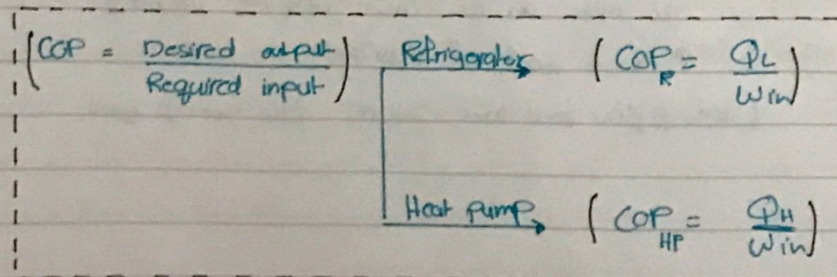 (COP = Desired output / Required input) Refrigerator (COP_R = Q_L / Win)
Heat pump (COP_HP = Q_H / Win)